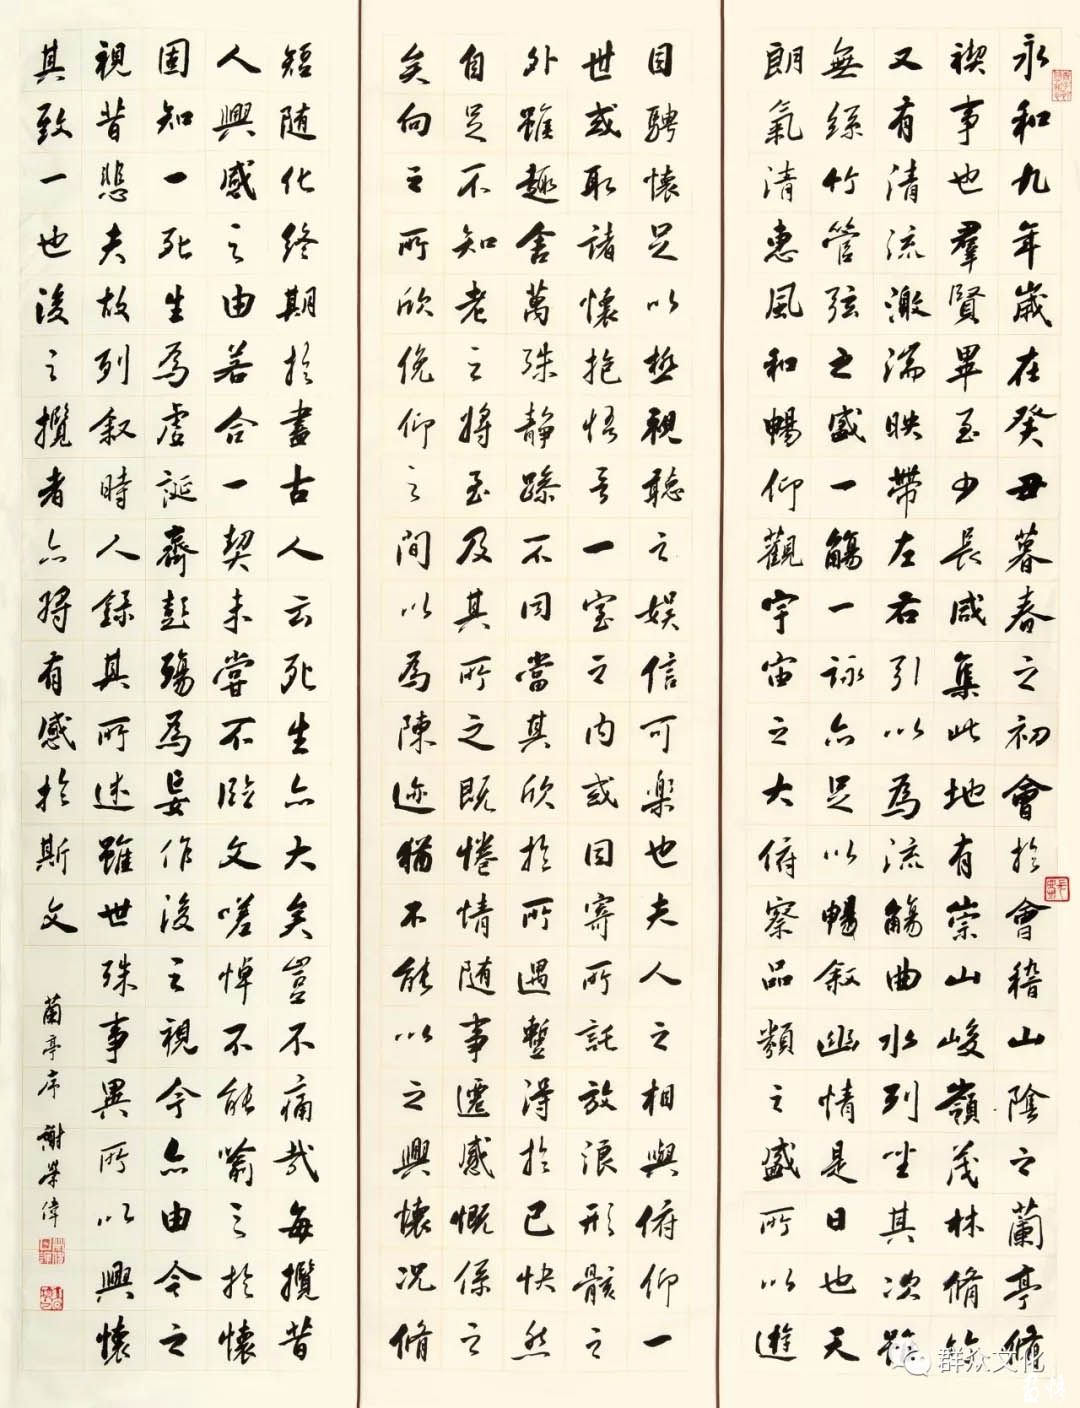 永和九年歲在癸丑暮春之初會於會稽山陰之蘭亭脩
禊事也羣賢畢至少長咸集此地有崇山峻嶺茂林脩竹
又有清流激湍映帶左右引以為流觴曲水列坐其次雖
無絲竹管弦之盛一觴一詠亦足以暢叙幽情是日也天
朗氣清惠風和暢仰觀宇宙之大俯察品類之盛所以遊
目騁懷足以極視聽之娱信可樂也夫人之相與俯仰一
世或取諸懷抱悟言一室之内或因寄所託放浪形骸之
外雖趣舍萬殊静躁不同當其欣於所遇暫得於己快然
自足不知老之將至及其所之既惓情随事遷感慨係之
矣向之所欣俛仰之間以為陳迹猶不能以之興懷況脩
短随化終期於盡古人云死生亦大矣豈不痛哉每攬昔
人興感之由若合一契未嘗不臨文嗟悼不能喻之於懷
固知一死生為虛誕齊彭殤為妄作後之視今亦由今之
視昔悲夫故列叙時人錄其所述雖世殊事異所以興懷
其致一也後之攬者亦將有感於斯文
蘭亭序 謝榮偉
群众文化